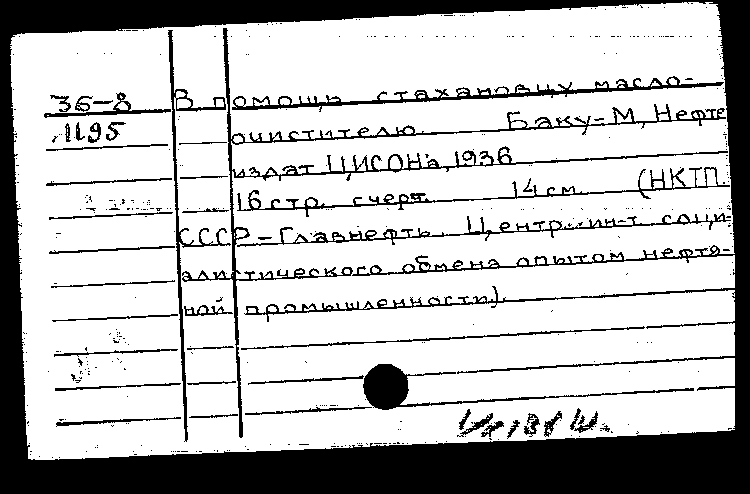 36-8 В помощь стахановцу масло-
1195 очистителю Баку-М, Нефте
издат ЦИСОНа, 1936
16 стр. с черт. 14 см. (НКТП.
СССР-Главнефть. Центр. ин-т соци-
алистического обмена опытом нефтя-
ной промышленности).